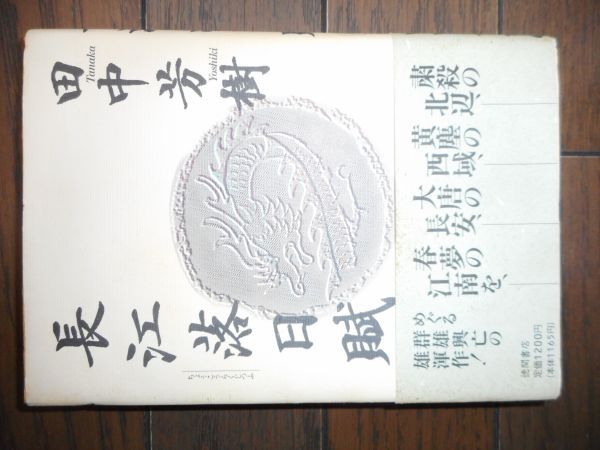 田中芳樹
Tanaka
Yoshiki
長江落日賦
ちょうこうらくじつふ
粛殺の
北辺、
黄塵の
西域、
大唐の
長安、
春夢の
江南を、
めぐる
群雄興亡の
雄渾作!
徳間書店
定価1200円
(本体1165円)